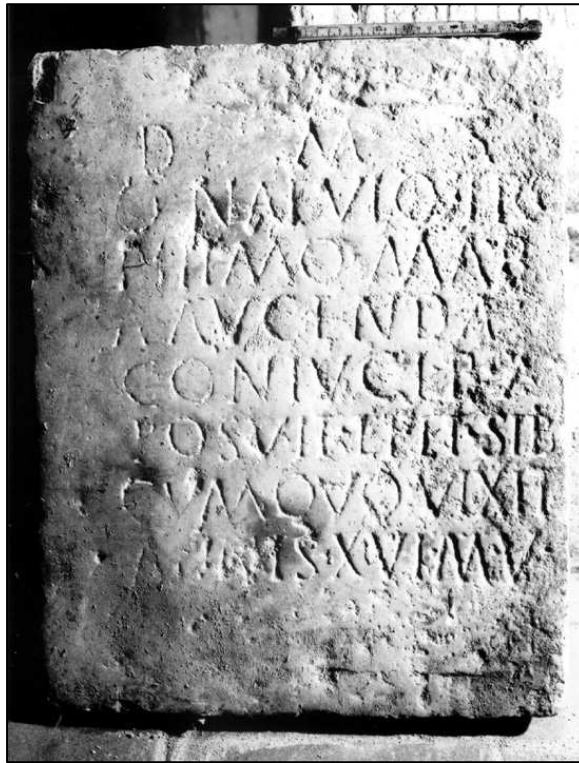 D M
Q NAEVIO TRO
PHIMO MA
AVGENDA
CONIVGI
POSVIT·ET SIB
CVM QVO VIXIT
ANNIS·XVI·M·V
I